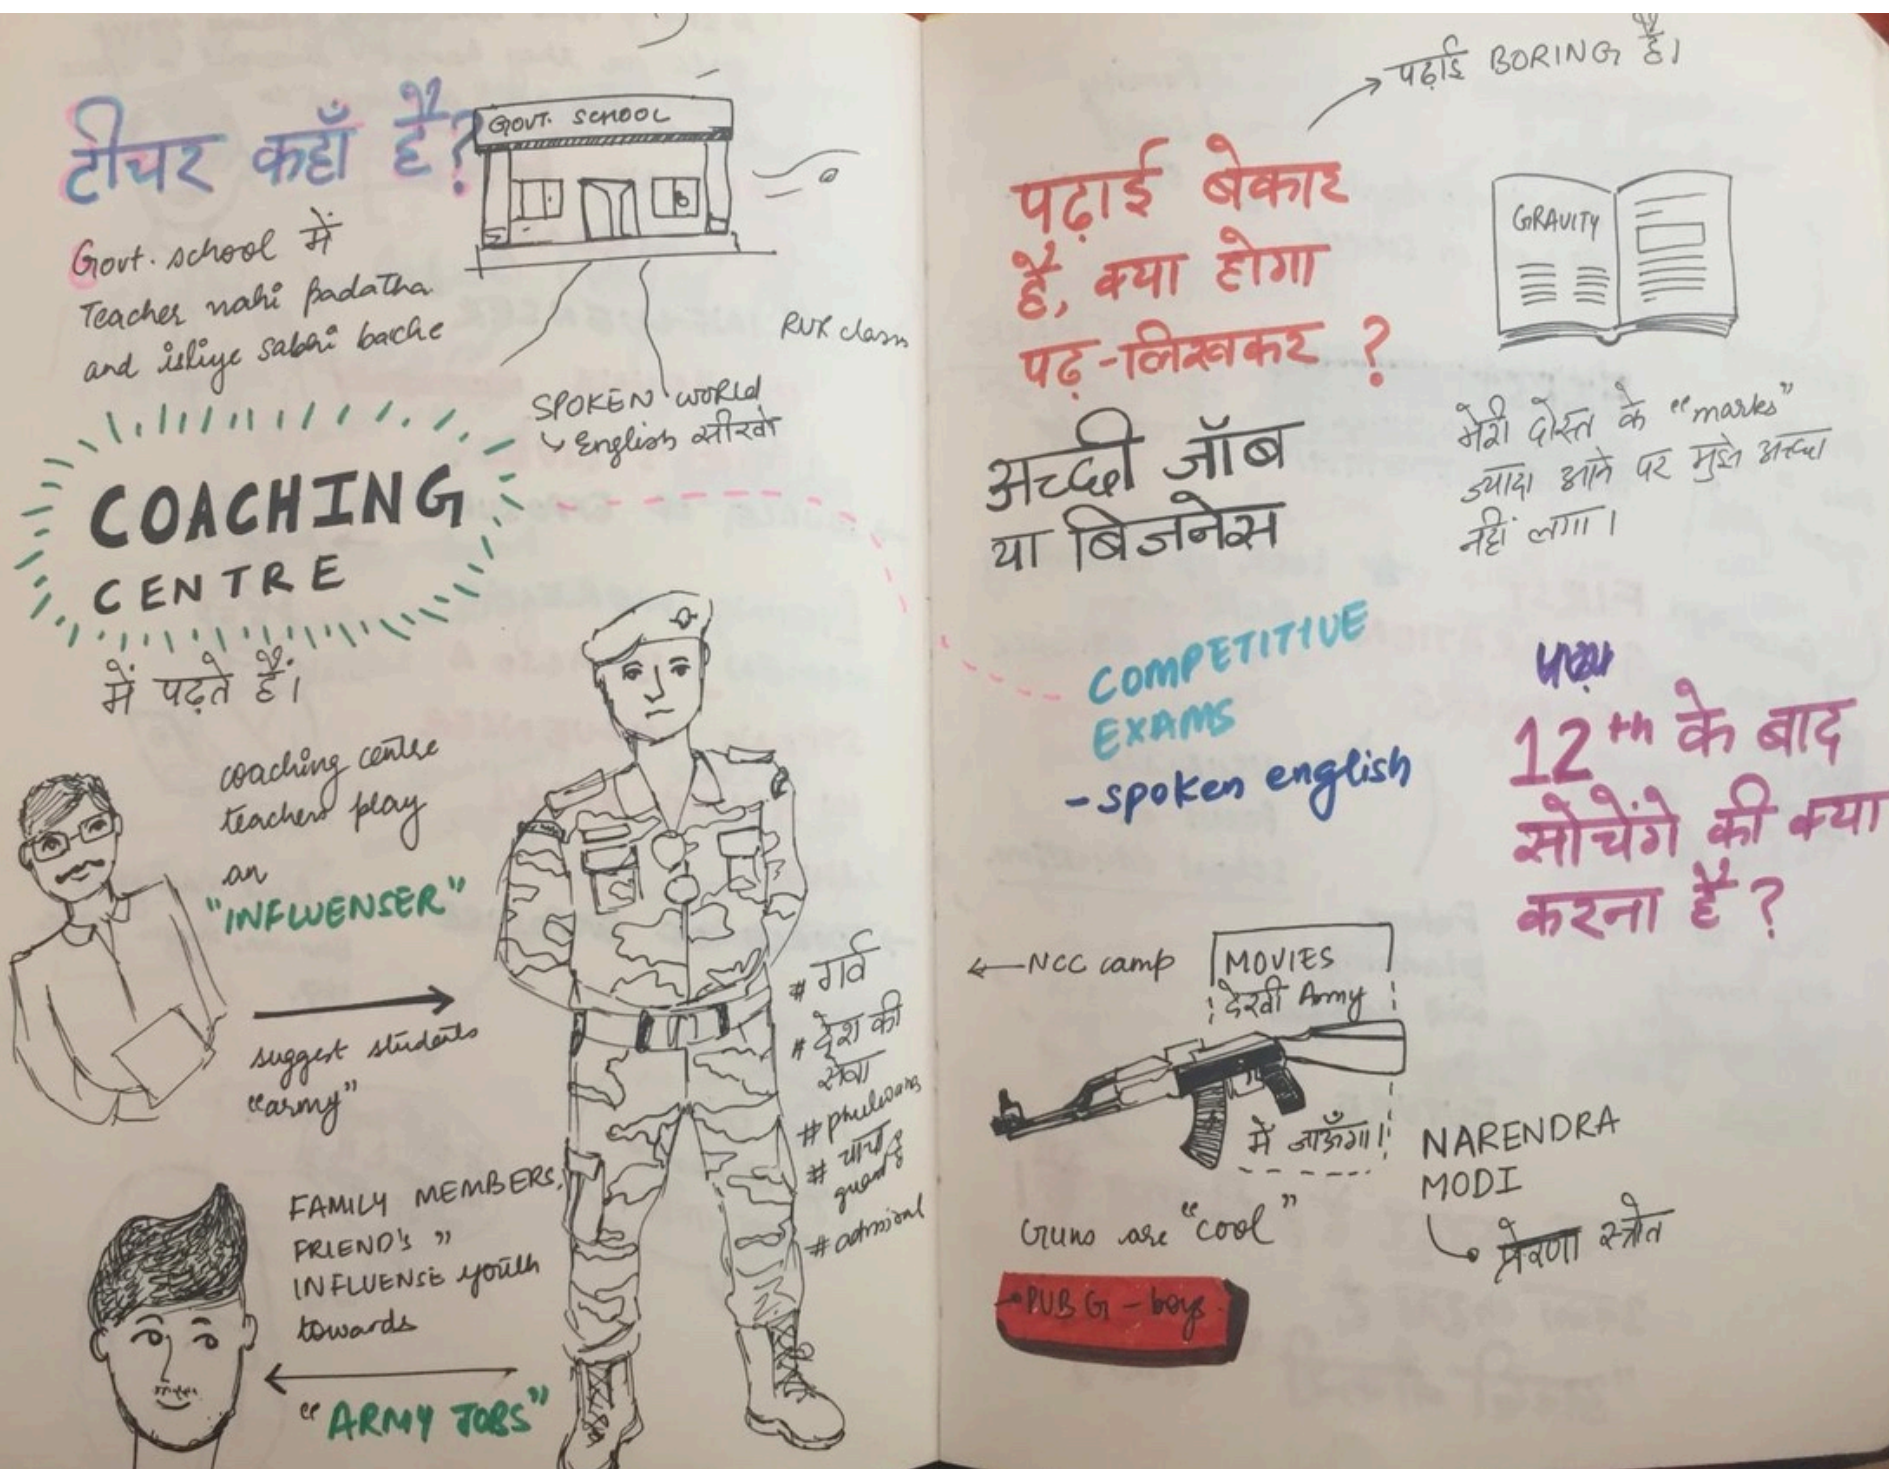 टीचर कहाँ है?
GOVT. SCHOOL
Govt. school में
Teacher nahi padatha
and isliye sabhi bache
RUR class
SPOKEN WORLD
English सीखो
COACHING
CENTRE
में पढ़ते हैं।
coaching centre
teachers play
an
"INFLUENSER"
suggest students
"army"
# गर्व
# देश की
सेवा
#
# चाचा
guard है
# admiral
FAMILY MEMBERS,
FRIEND'S "
INFLUENSE youth
towards
"ARMY JOBS"
पढ़ाई BORING है।
पढ़ाई बेकार
है, क्या होगा
पढ़-लिखकर ?
GRAVITY
अच्छी जॉब
या बिजनेस
मेरी दोस्त के "marks"
ज्यादा आने पर मुझे अच्छा
नहीं लगा।
COMPETITIVE
EXAMS
- spoken english
12th के बाद
सोचेंगे की क्या
करना है ?
NCC camp
MOVIES
देखी Army
में जाऊँगा।
Guns are "cool"
PUBG - boys
NARENDRA
MODI
प्रेरणा स्त्रोत